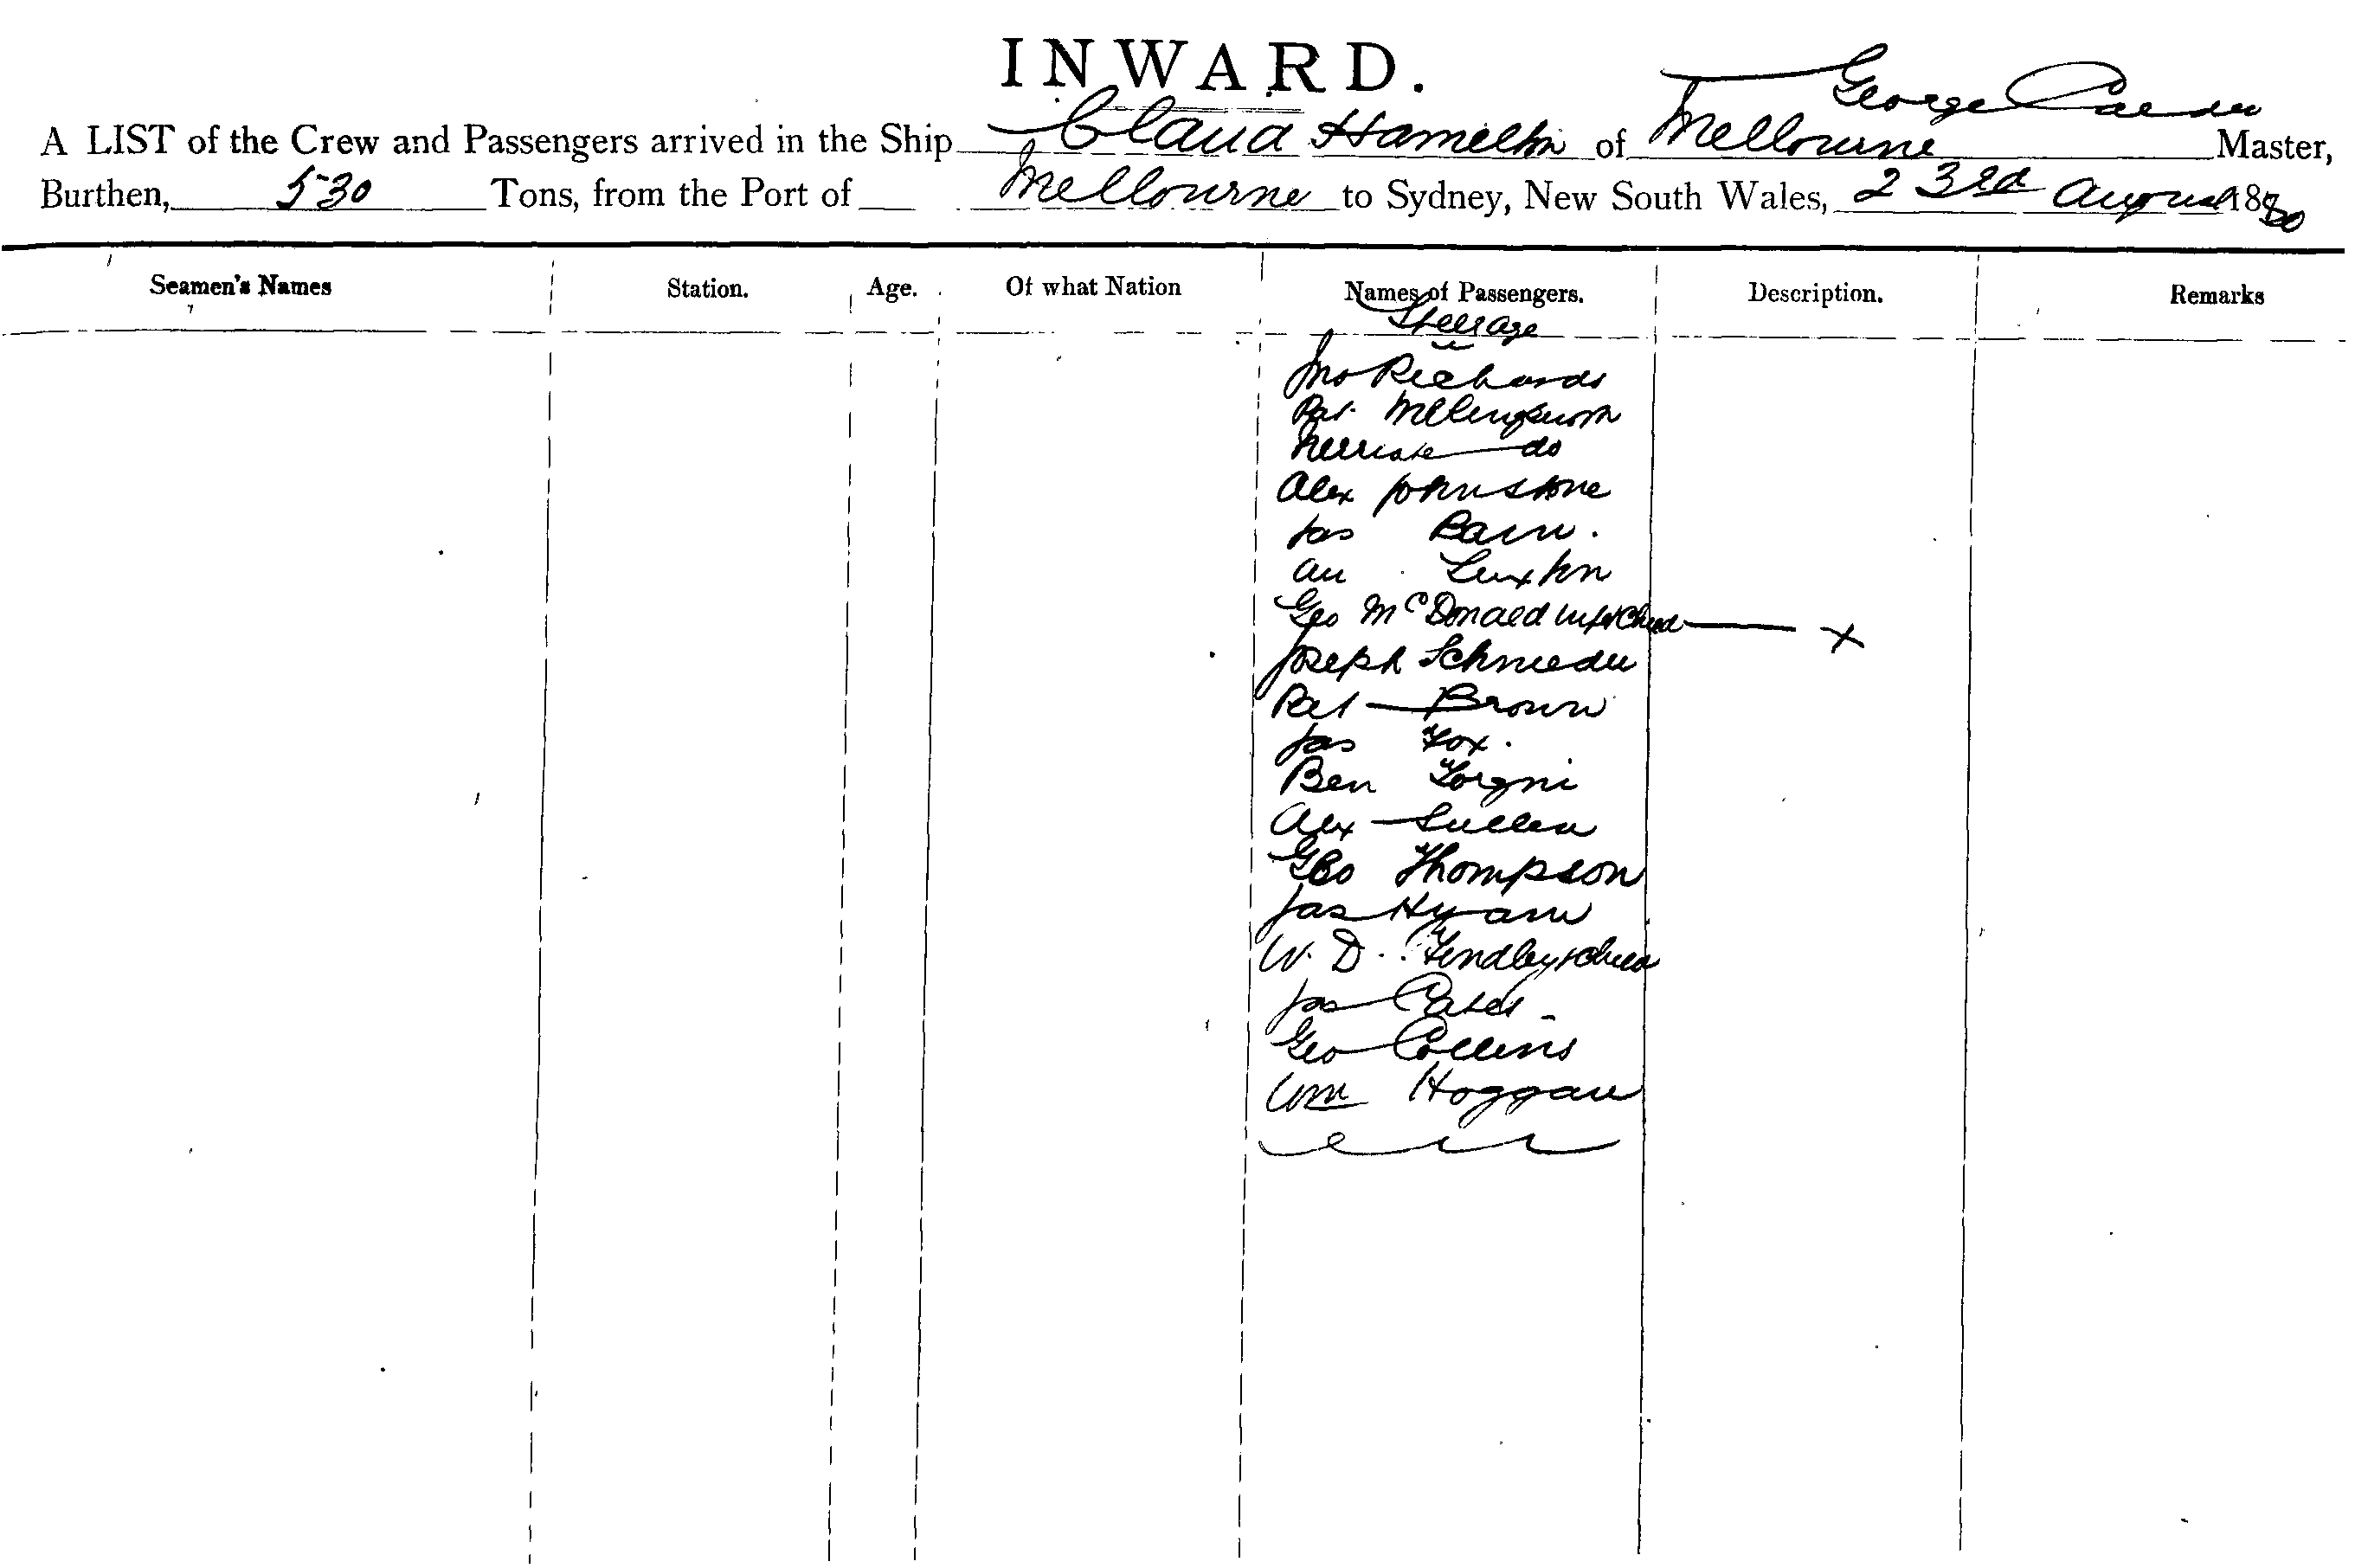 INWARD.
George
A LIST of the Crew and Passengers arrived in the Ship Claud Hamilton of Melbourne Master,
Burthen, 530 Tons, from the Port of Melbourne to Sydney, New South Wales, 23rd August 1880
Seamen's Names Station. Age. Of what Nation Names of Passengers. Description. Remarks
Steerage
Jno Richards
Pat
do
Alex Johnstone
Jas Bain.
Luxton
Geo McDonald wife & Child x
Joseph Schnieder
Pat Brown
Jas Fox.
Ben Forgni
Alex
Geo Thompson
Jas Hyam
W. D. Findley & child
Jas
Geo Collins
Wm Hoggan